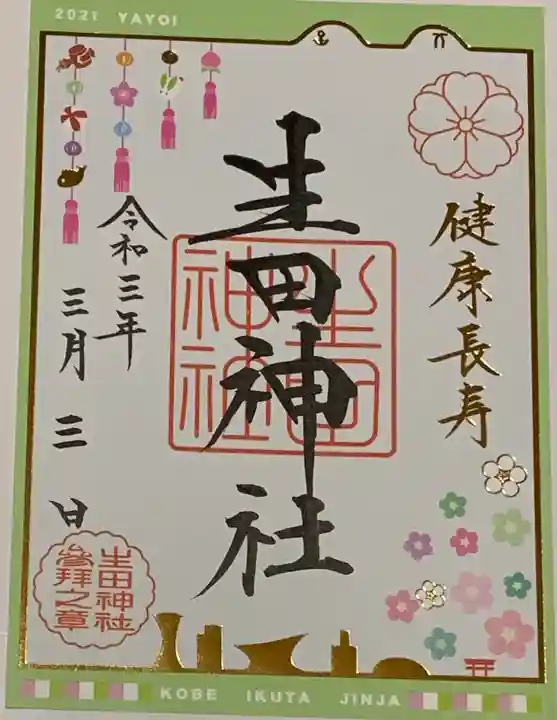 2021 YAYOI
健康長寿
生田神社
生田神社
令和三年
三月三日
生田神社
参拜之章
KOBE IKUTA JINJA